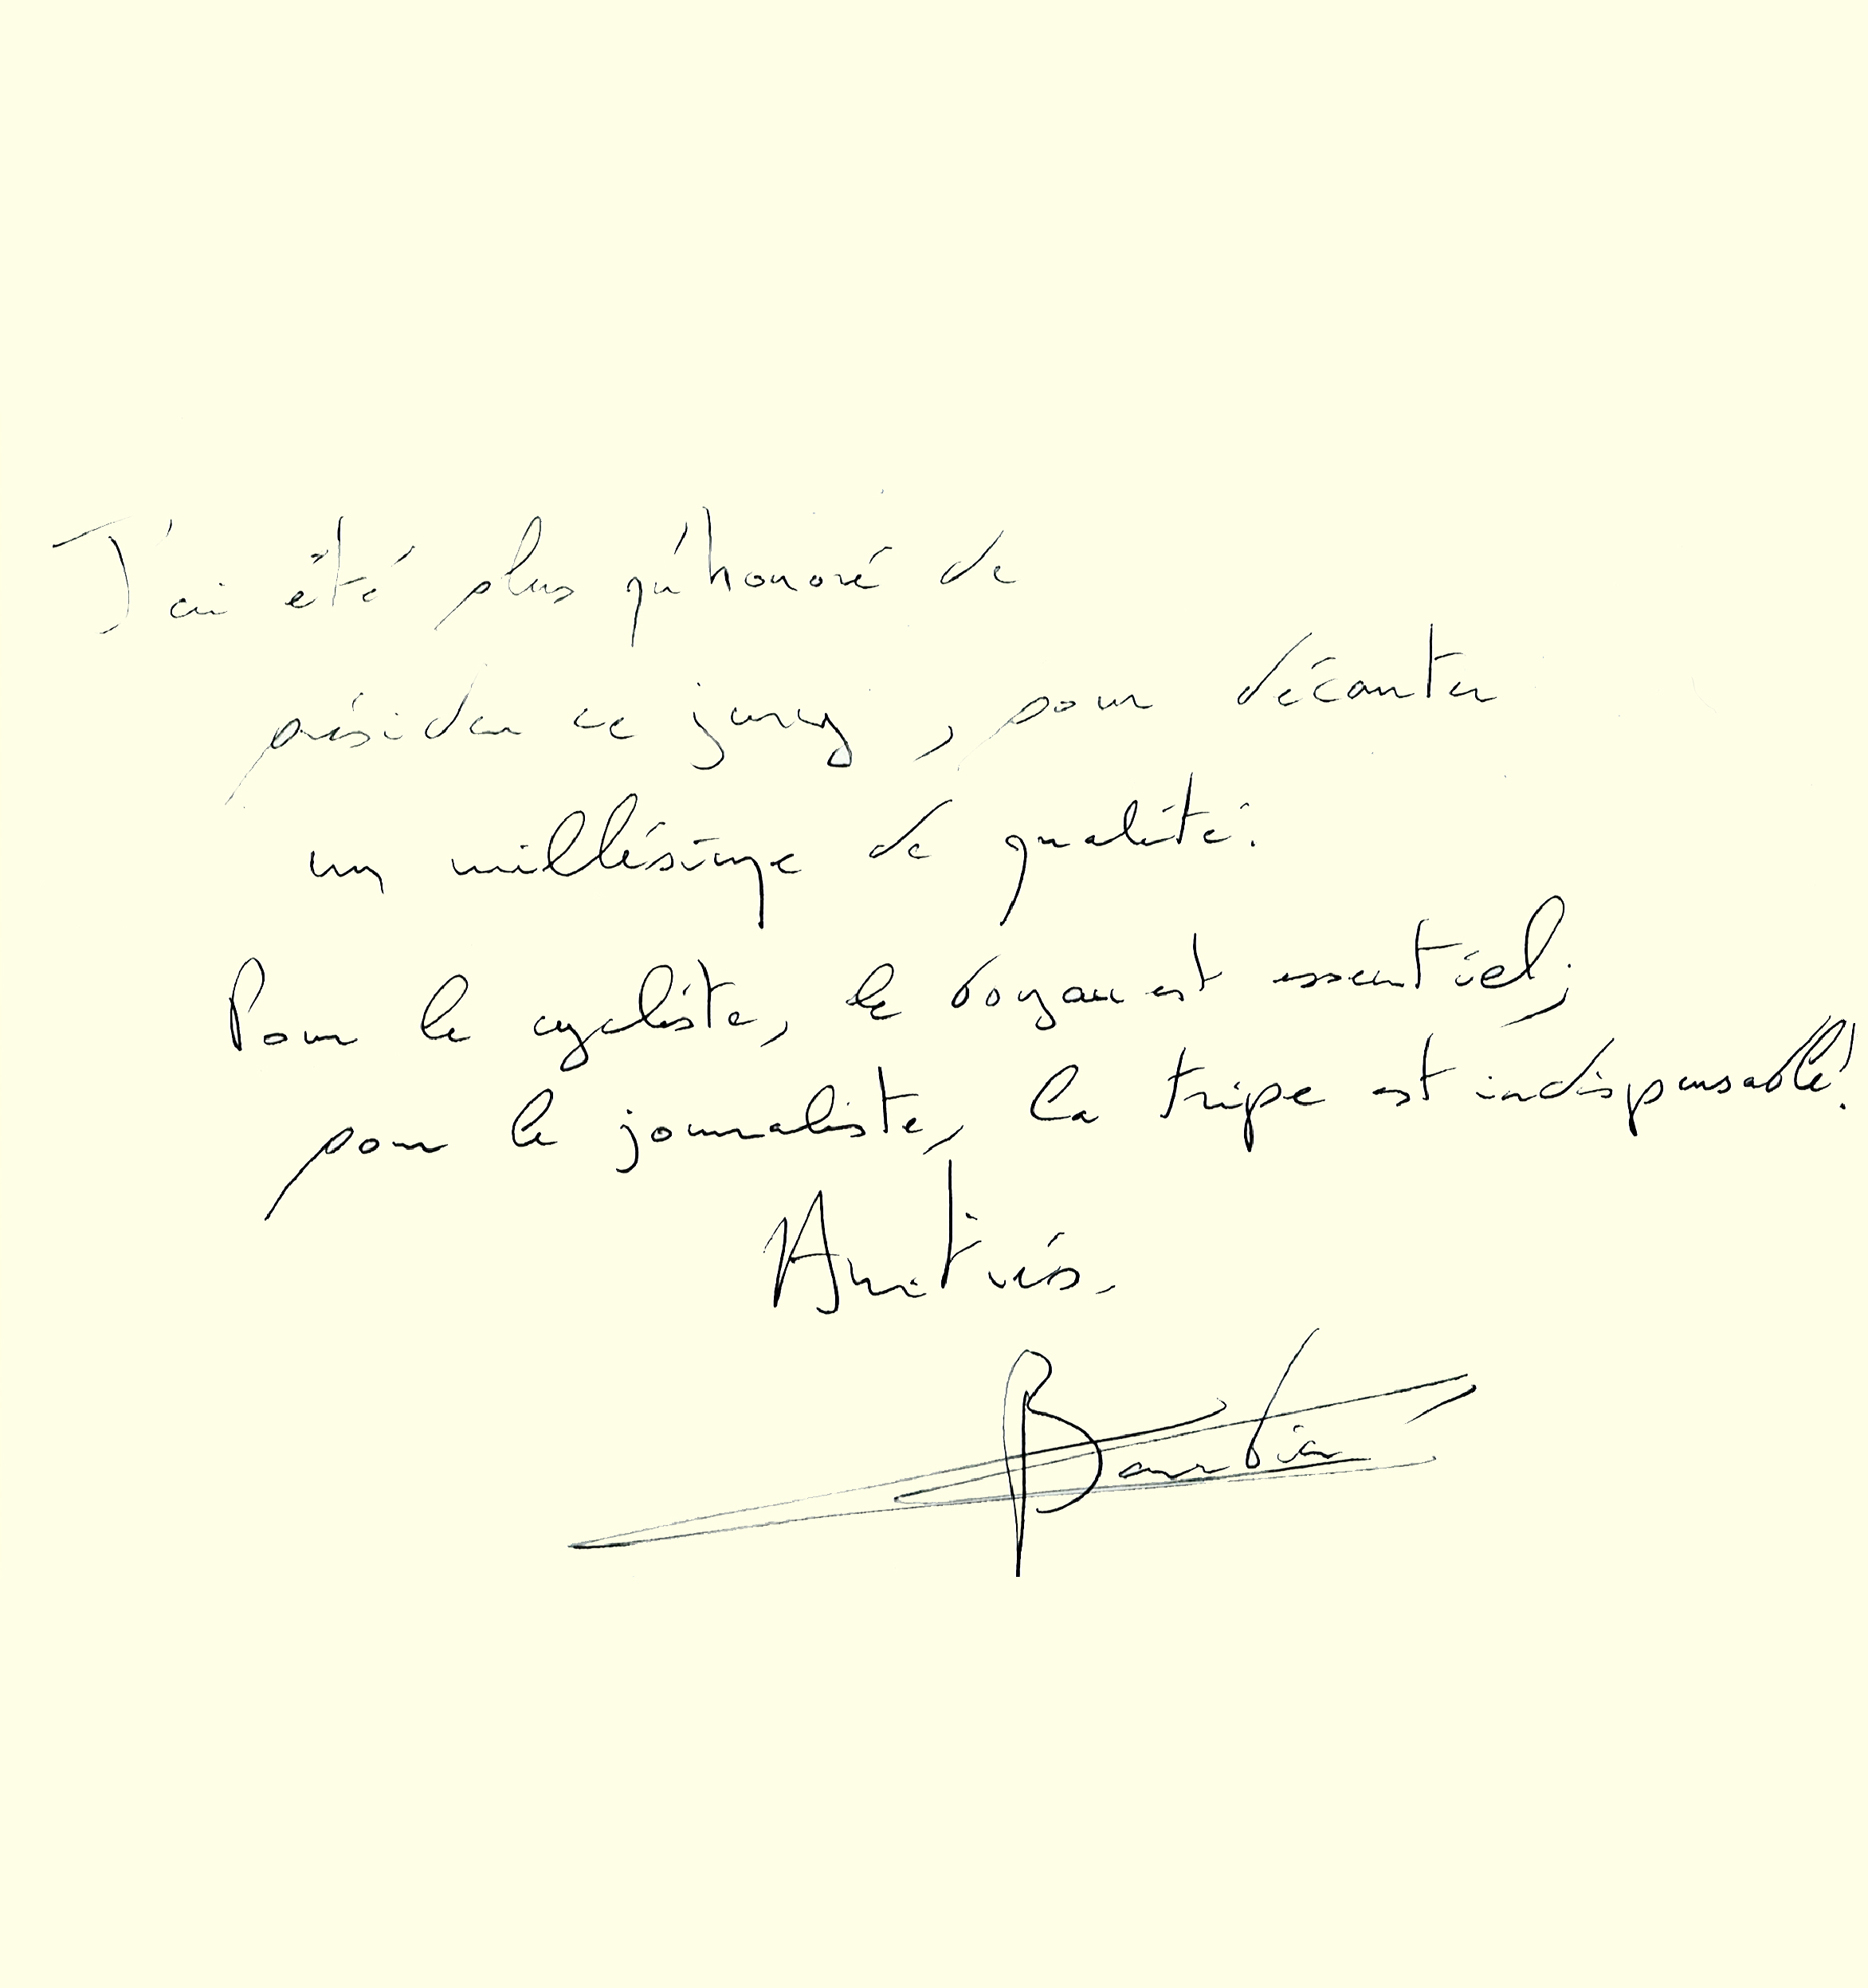 J'ai été plus qu'honoré de
présider ce jury, pour décanter
un millésime de qualité.
Pour le cycliste, le boyau est essentiel;
pour le journaliste, la tripe est indispensable!
Amitiés.
Barbier